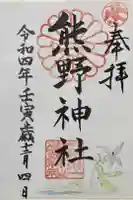 奉拝
熊野神社
令和四年壬寅歳十二月四日